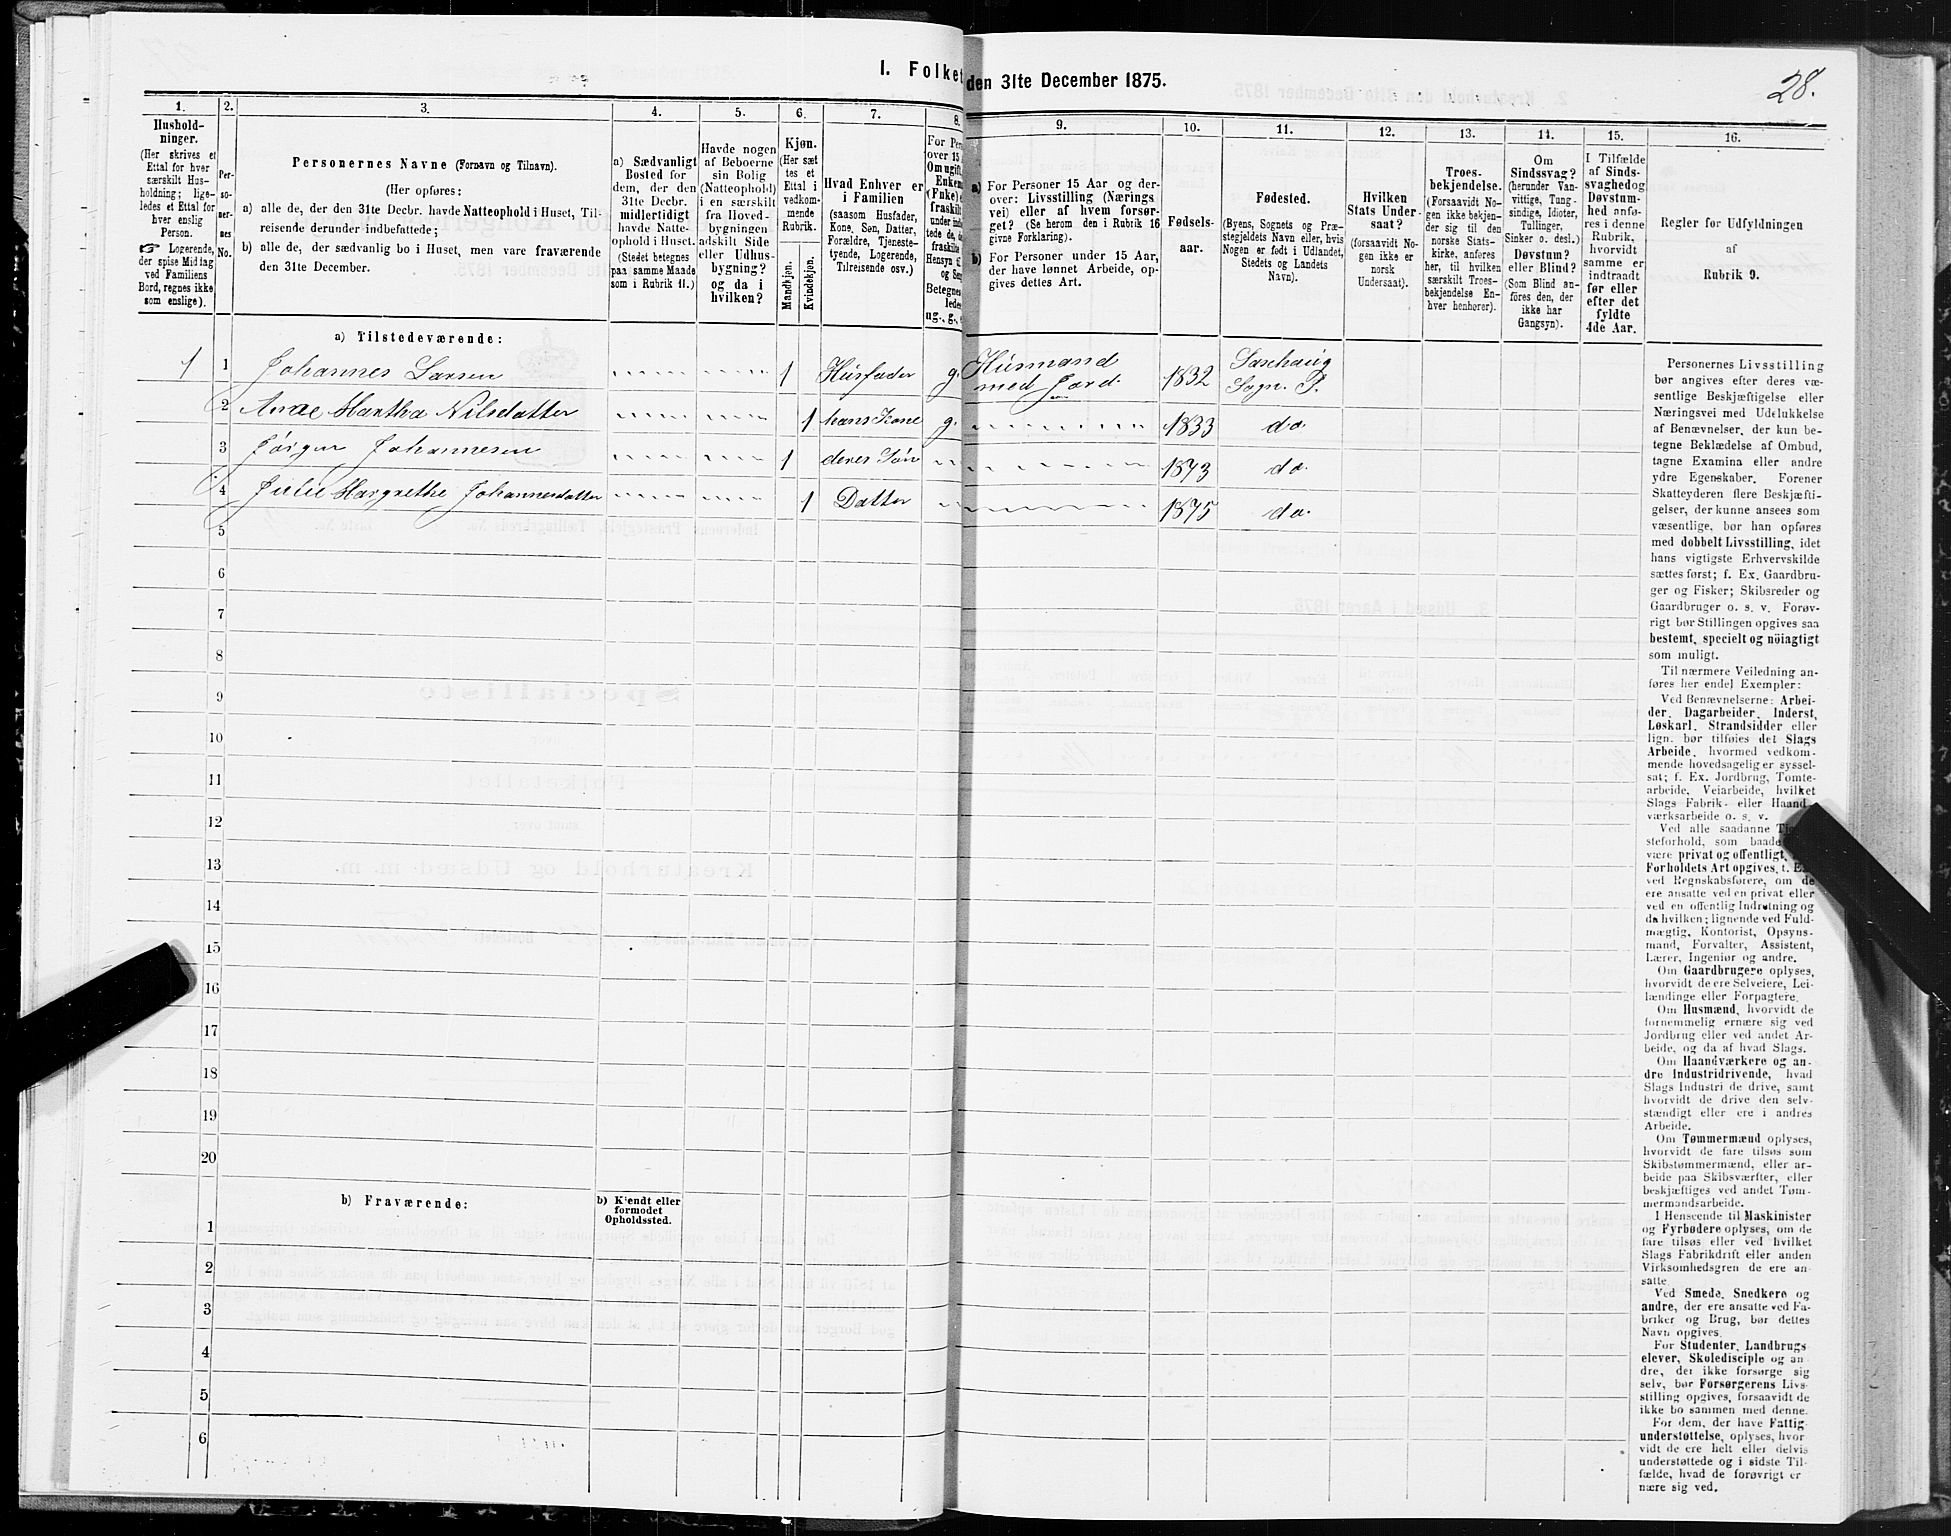 I. Folket
den 31te December 1875.
28.
1.
Hushold-
ninger.
(Her skrives et
Ettal for hver
særskilt Hus-
holdning; lige-
ledes et Ettal for
hver enslig
Person.
☞ Logerende,
der spise Middag
ved Familiens
Bord, regnes ikke
som enslige).
2.
Per-
so-
ner-
nes
No.
3.
Personernes Navne (Fornavn og Tilnavn).
(Her opføres:
a) alle de, der den 31te Decbr. havde Natteophold i Huset, Til-
reisende derunder indbefattede;
b) alle de, der sædvanlig bo i Huset, men vare fraværende
den 31te December.
4.
a) Sædvanligt
Bosted for
dem, der den
31te Decbr.
midlertidigt
havde Natte-
ophold i Huset.
(Stedet betegnes
paa samme Maade
som i Rubrik 11.)
5.
Havde nogen
af Beboerne
sin Bolig
(Natteophold)
i en særskilt
fra Hoved-
bygningen
adskilt Side
eller Udhus-
bygning?
og da i
hvilken?
6.
Kjøn.
(Her sæt
tes et
Ettal i
vedkom-
mende
Rubrik.
Mandkjøn.
Kvindekjøn.
7.
Hvad Enhver er
i Familien
(saasom Husfader,
Kone, Søn, Datter,
Forældre, Tjeneste-
tyende, Logerende,
Tilreisende osv.)
8.
For Pers
over 15
Om ugift
Enkem
(Fnke) e
fraskilt
Betegnes
ledes
ug., g., e
9.
a) For Personer 15 Aar og der-
over: Livsstilling (Nærings
vei) eller af hvem forsør-
get? (Se herom den i Rubrik 16
givne Forklaring).
b) For Personer under 15 Aar,
der have lønnet Arbeide, op-
gives dettes Art.
10.
Fødsels-
aar.
11.
Fødested.
(Byens, Sognets og Præ-
stegjeldets Navn eller, hvis
Nogen er født i Udlandet,
Stedets og Landets
Navn).
12.
Hvilken
Stats Under-
saat?
(forsaavidt No-
gen ikke er
norsk
Undersaat).
13.
Troes-
bekjendelse.
(Forsaavidt No-
gen ikke bekjen-
der sig til den
norske Stats-
kirke, anføres
her, til hvilken
særskilt Troes-
bekjendelse En-
hver henhører).
14.
Om
Sindssvag?
(herunder Van-
vittige, Tung-
sindige, Idioter,
Sinker o. desl.)
Døvstum?
eller Blind?
(Som Blind an-
føres den, der
ikke har
Gangsyn).
15.
I Tilfælde
af Sinds-
svaghedog
Døvstum-
hed anfø-
res i denne
Rubrik,
hvorvidt
samme er
indtraadt
før eller
efter det
fyldte
4de Aar.
16.
Regler for Udfyldningen
af
Rubrik 9.
a) Tilstedeværende:
1 1 Johannes Larsen 1 Husfader g. Husmand med Jord 1832 Saxhaug Sogn. P.
2 Ane Martha Nilsdatter 1 hans Kone g. 1833 do.
3 Jørgen Johannesen 1 deres Søn 1873 do.
4 Julie Margrethe Johannesdatter 1 Datter 1875 do.
5
6
7
8
9
10
11
12
13
14
15
16
17
18
19
20
b) Fraværende:
b) Kjendt eller
formodet
Opholdssted.
1
2
3
4
5
6
Personernes Livsstilling
bør angives efter deres væ-
sentlige Beskjæftigelse eller
Næringsvei med Udelukkelse
af Benævnelser, der kun be-
tegne Beklædelse af Ombud,
tagne Examina eller andre
ydre Egenskaber. Forener
Skatteyderen flere Beskjæfti-
gelser, der kunne ansees som
væsentlige, bør han opføres
med dobbelt Livsstilling, idet
hans vigtigste Erhvervskilde
sættes først; f. Ex. Gaardbru-
ger og Fisker; Skibsreder og
Gaardbruger o. s. v. Forøv-
rigt bør Stillingen opgives saa
bestemt, specielt og nöiagtigt
som muligt.
Til nærmere Veiledning an-
føres her endel Exempler:
Ved Benævnelserne: Arbei-
der, Dagarbeider, Inderst,
Løskarl, Strandsidder eller
lign. bør tilføies det Slags
Arbeide, hvormed vedkom-
mende hovedsagelig er syssel-
sat; f. Ex. Jordbrug, Tomte-
arbeide, Veiarbeide, hvilket
Slags Fabrik- eller Haand-
værksarbeide o. s. v.
Ved alle saadanne
steforhold, som baade
være privat og offentligt,
Forholdets Art opgives, f. E
ved Regnskabsførere, om de
ere ansatte ved en privat eller
ved en offentlig Indretning og
da hvilken; lignende ved Fuld-
mægtig, Kontorist, Opsyns-
mand, Forvalter, Assistent,
Lærer, Ingeniør og andre.
Om Gaardbrugere oplyses,
hvorvidt de ere Selveiere, Lei-
lændinge eller Forpagtere.
Om Husmænd, hvorvidt de
fornemmelig ernære sig ved
Jordbrug eller ved andet Ar-
beide, og da af hvad Slags.
Om Haandværkere og an-
dre Industridrivende, hvad
Slags Industri de drive, samt
hvorvidt de drive den selv-
stændigt eller ere i andres
Arbeide.
Om Tømmermænd oplyses,
hvorvidt de fare tilsøs som
Skibstømmermænd, eller ar-
beide paa Skibsværfter, eller
beskjæftiges ved andet Tøm-
mermandsarbeide.
I Henseende til Maskinister
og Fyrbødere oplyses, om de
fare tilsøs eller ved hvilket
Slags Fabrikdrift eller anden
Virksomhedsgren de ere an-
satte.
Ved Smede, Snedkere og
andre, der ere ansatte ved Fa-
briker og Brug, bør dettes
Navn opgives.
For Studenter, Landbrugs
elever, Skoledisciple og an
dre, der ikke forsørge sig
selv, bør Forsørgerens Livs-
stilling opgives, forsaavidt de
ikke bo sammen med denne.
For dem, der have Fattig
understøttelse, oplyses, hvor
vidt de ere helt eller delvis
understøttede og i sidste Til-
fælde, hvad de forøvrigt er
nære sig ved.